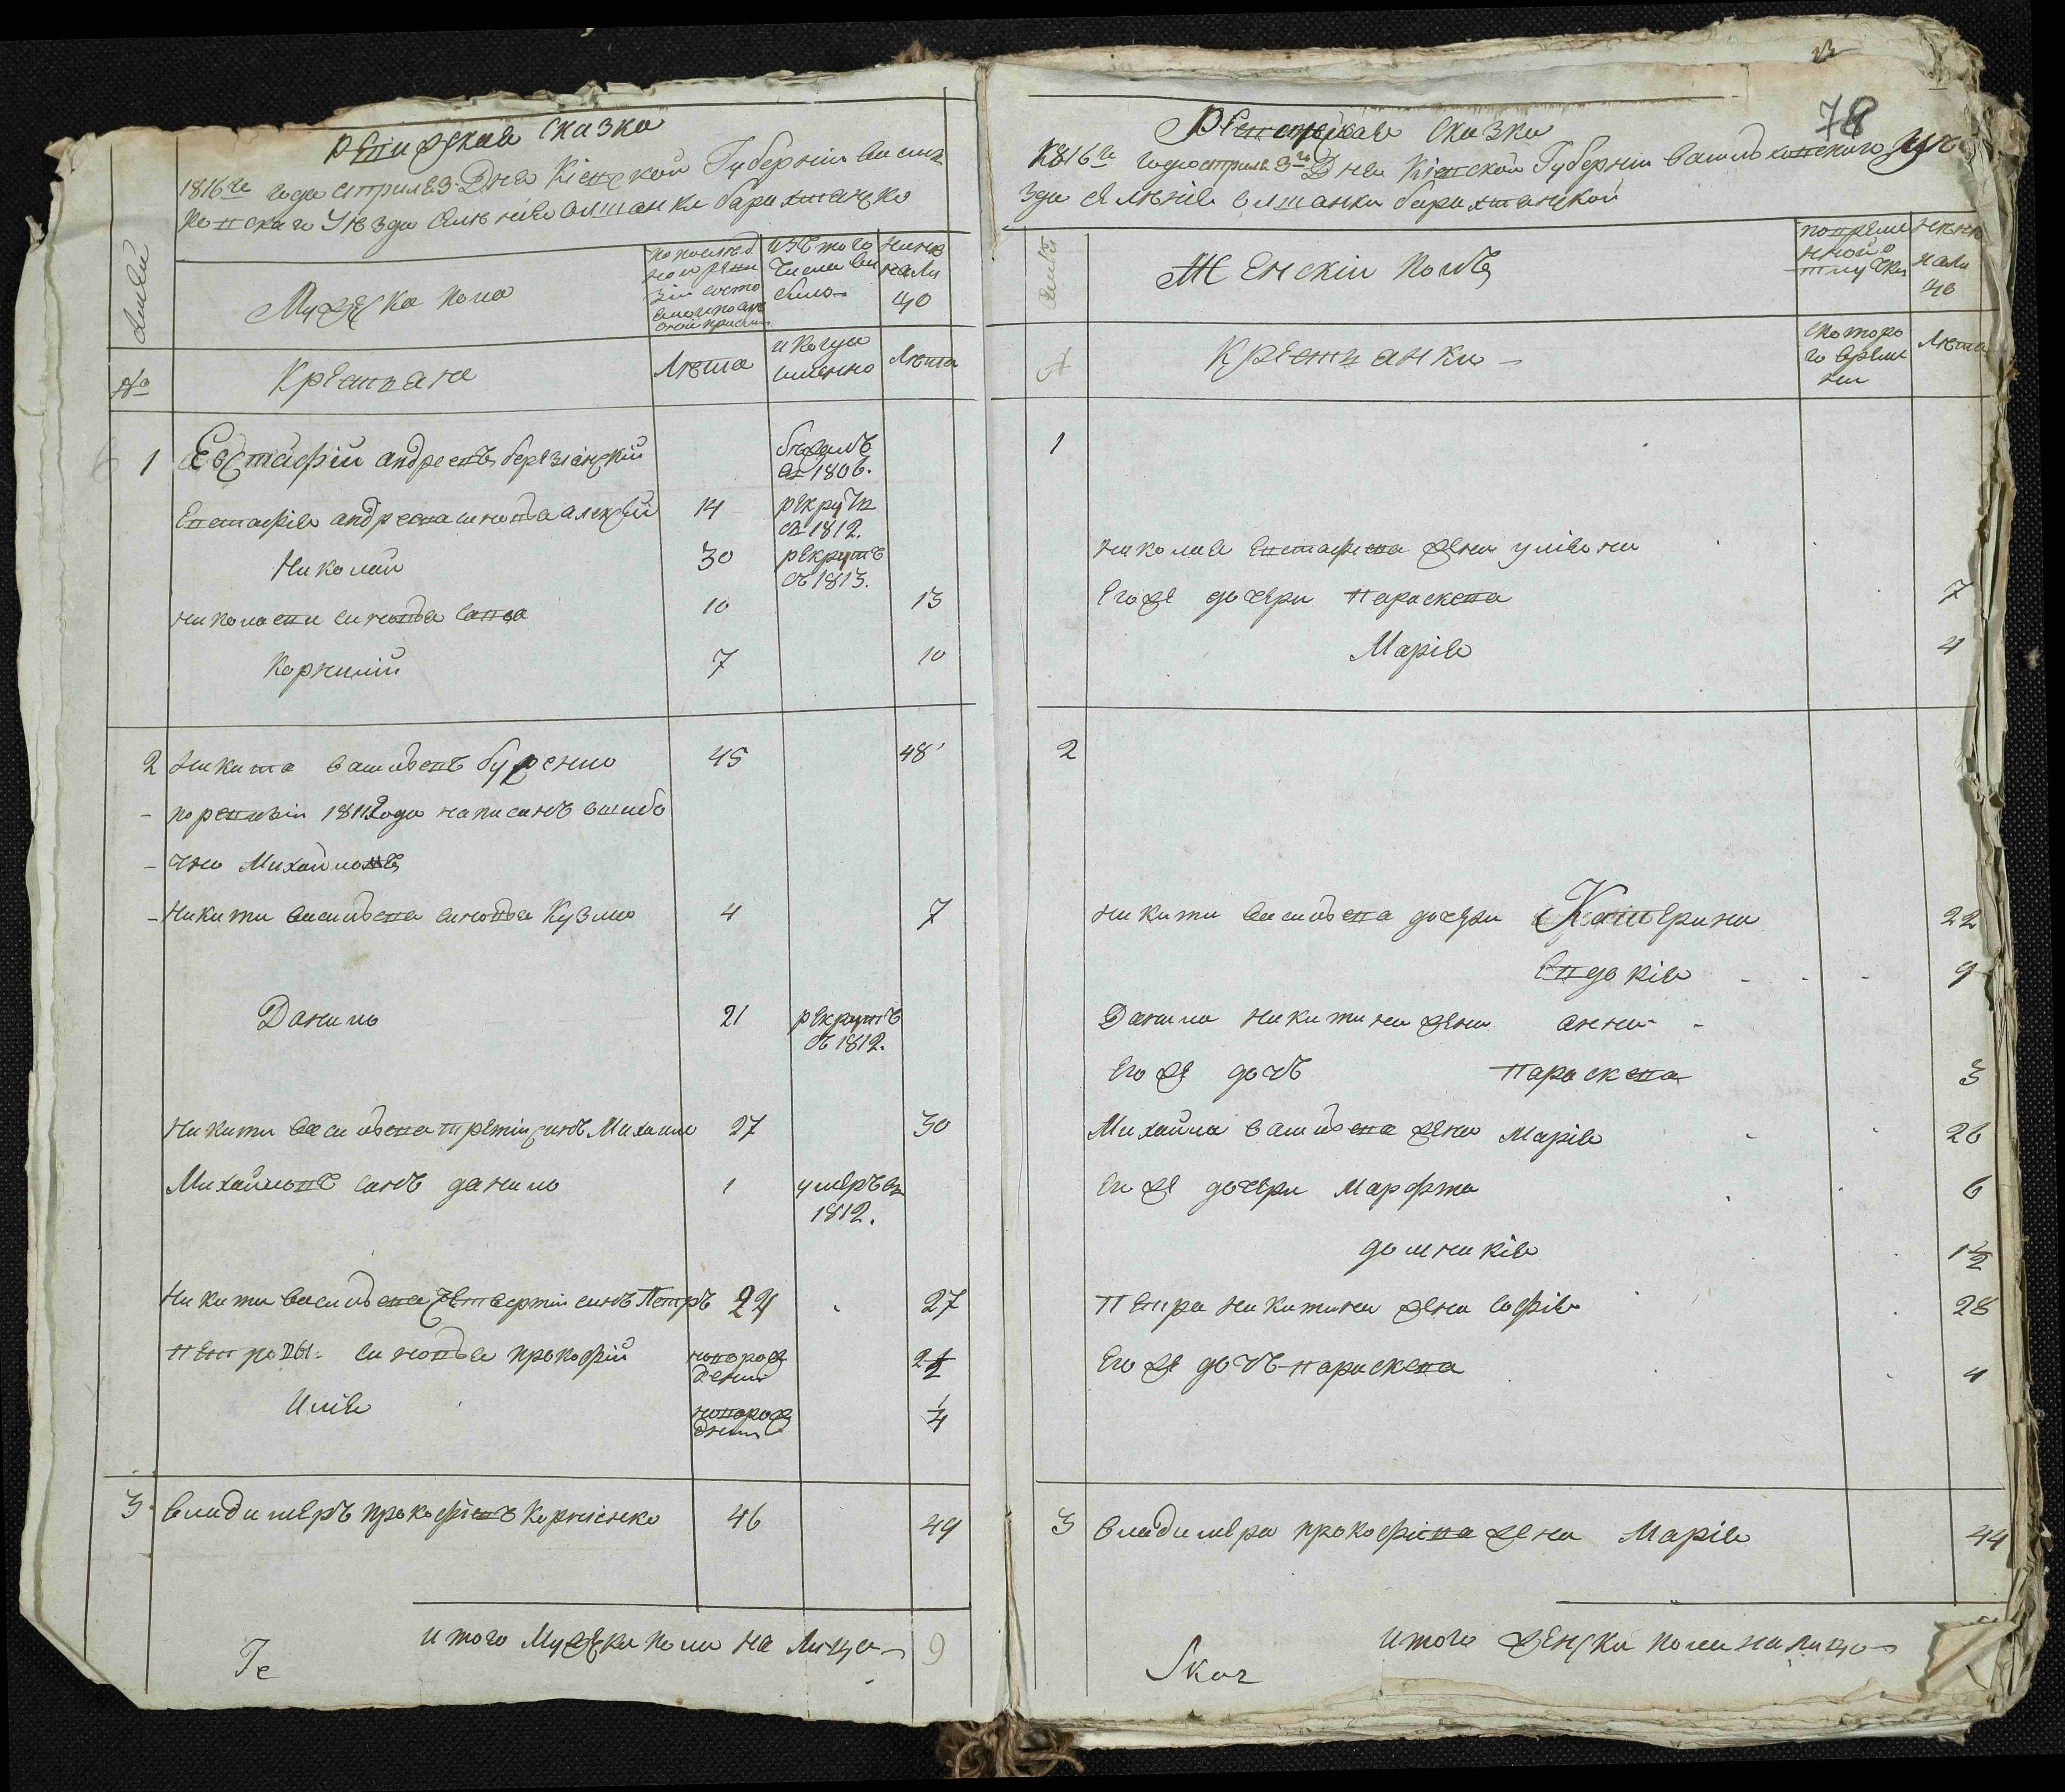 Ревизская Сказка
1816го года априля 3 Дня Кіевской Губерніи Василь
ковскаго Уезда Селенія Ольшанки барахтянско
Семей
Мужеска пола
по послед
ней реви
зіи состо
яло и по
изъ того
числа вы
было
ныне
на ли
цо
№
Крестьяне
Лета
и когда
именно
Лета
1 Евстафій андреевъ березанскій
бежалъ
въ 1806.
Евстафія андреева сыновья алексей 14 рекрутъ
въ 1812.
Николай 30 рекрутъ
въ 1813.
николаеви сыновья савва 10 13
Корнилій 7 10
2 Никита васильевъ бузенно 45 48
- по ревизіи 1811 года написанъ ошибо
- чно Михайловъ
- Никити васильева сыновья Кузмо 4 7
Данило 21 рекрутъ
въ 1812.
Никити васильева третій синъ Михайло 27 30
Михайловъ синъ данило 1 умеръ въ
1812.
Никити васильева четвертій синъ Петръ 24 27
петровы сыновья прокофій новорож
деный 2 1/2
Илія новорож
дений 1/4
3 владимеръ прокофіевъ Корніенко 46 49
итого Мужеска пола на лицо 9
Те
78
Ревизская Сказка
1816го года априля 3го Дня Кіевской Губерніи Васильковского уе
зда Селенія ольшанки барахтянской
Семей
Женскій полъ
во времен
ной
отлучки
ныне
на ли
цо
№
Крестьянки
с которо
го време
ни
Лета
1
николая Евстафиева жена уліяна
Егоже дочери параскева 7
Марія 4
2
никити васильева дочери Катерина 22
Евдокія 9
Данила никитина жена анна
Его же дочъ параскева 3
Михайла васильева жена Марія 26
Его же дочери Марфта 6
домникія 1 1/2
петра никитина жена софія 28
Его же дочъ параскева 4
3 владимера прокофіева жена Марія 44
итого женска пола на лицо
Skar